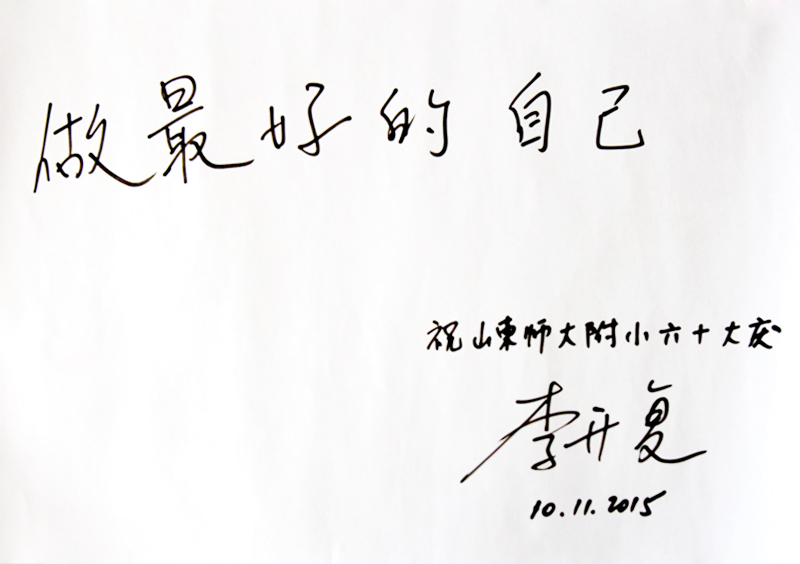 做最好的自己
祝山東师大附小六十大庆
李开复
10.11.2015